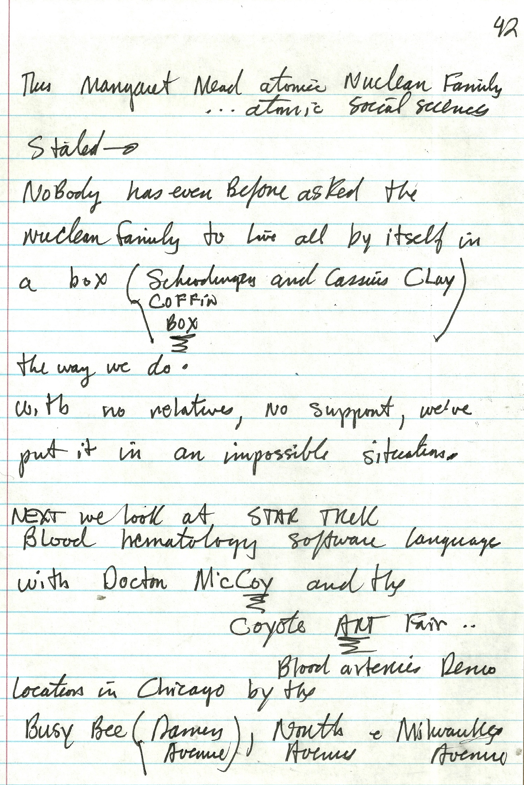 42
This Margaret Mead atomic Nuclear Family
... atomic social sciences
Stated →
NoBody has even Before asked the
nuclear family to live all by itself in
a box (Schrodingers and Cassius Clay)
COFFiN
BOX
the way we do.
with no relatives, no support, we've
put it in an impossible situation.
NEXT we look at STAR TREK
Blood hematology software language
with Doctor McCoy and the
Coyote ART Fair ..
Blood arteries Demo
location in Chicago by the
Busy Bee (Damen
Avenue), North e Milwaukee
Avenue Avenue